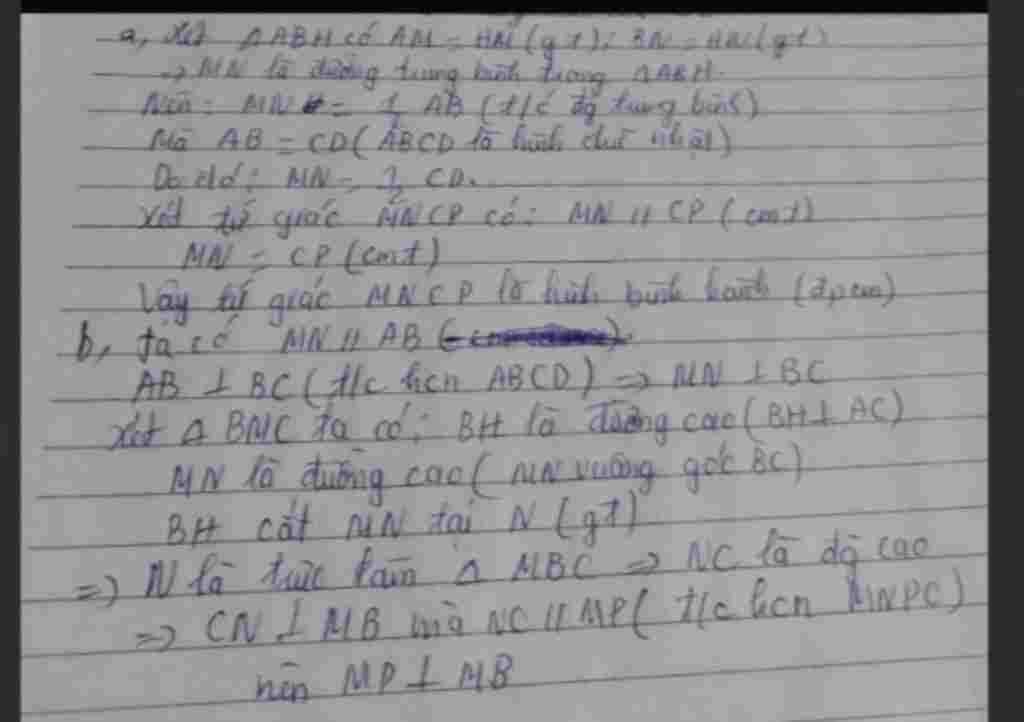 a, Xét ΔABH có AM = HM (gt); BN = HN (gt)
=> MN là đường trung bình trong ΔABH.
Nên: MN = 1/2 AB (t/c đg trung bình)
Mà AB = CD (ABCD là hình chữ nhật)
Do đó: MN = 1/2 CD.
Xét tứ giác MNCP có: MN // CP (cmt)
MN = CP (cmt)
Vậy tứ giác MNCP là hình bình hành (đpcm)
b, ta có MN // AB
AB ⊥ BC (t/c hcn ABCD) => MN ⊥ BC
Xét Δ BMC ta có: BH là đường cao (BH ⊥ AC)
MN là đường cao (MN vuông góc BC)
BH cắt MN tại N (gt)
=> N là trực tâm Δ MBC => NC là đg cao
=> CN ⊥ MB mà NC // MP (t/c hcn MNPC)
nên MP ⊥ MB